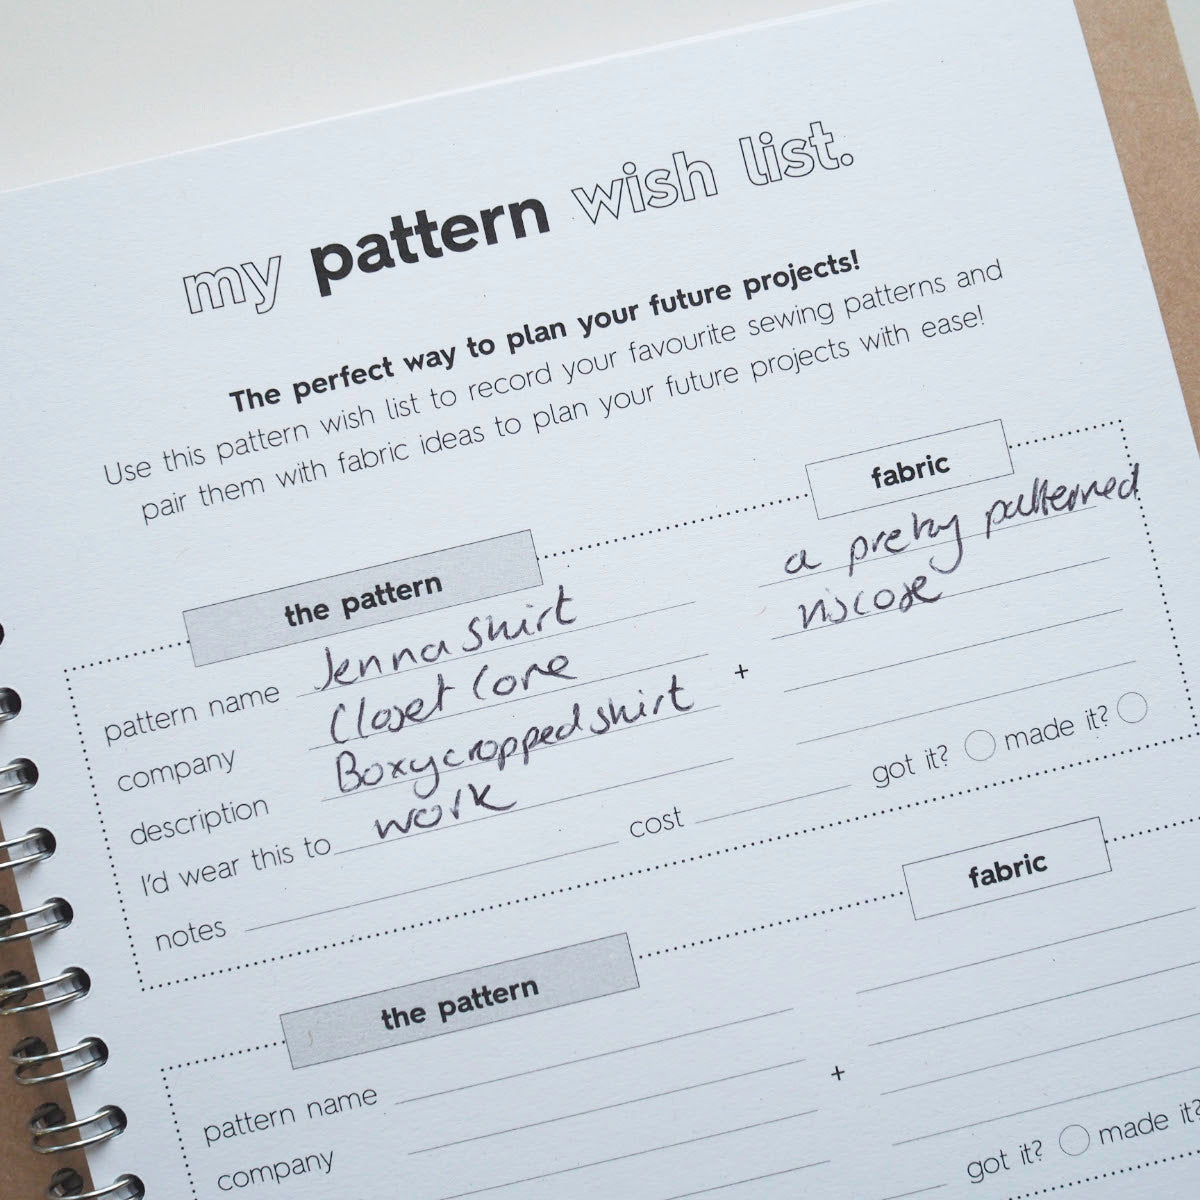 my pattern wish list.
The perfect way to plan your future projects!
Use this pattern wish list to record your favourite sewing patterns and
pair them with fabric ideas to plan your future projects with ease!
the pattern
fabric
pattern name Jenna shirt
company Closet Core
description Boxy cropped shirt
I'd wear this to work
notes
cost
+
a pretty patterned
viscose
got it? made it?
the pattern
fabric
pattern name
company
+
got it? made it?